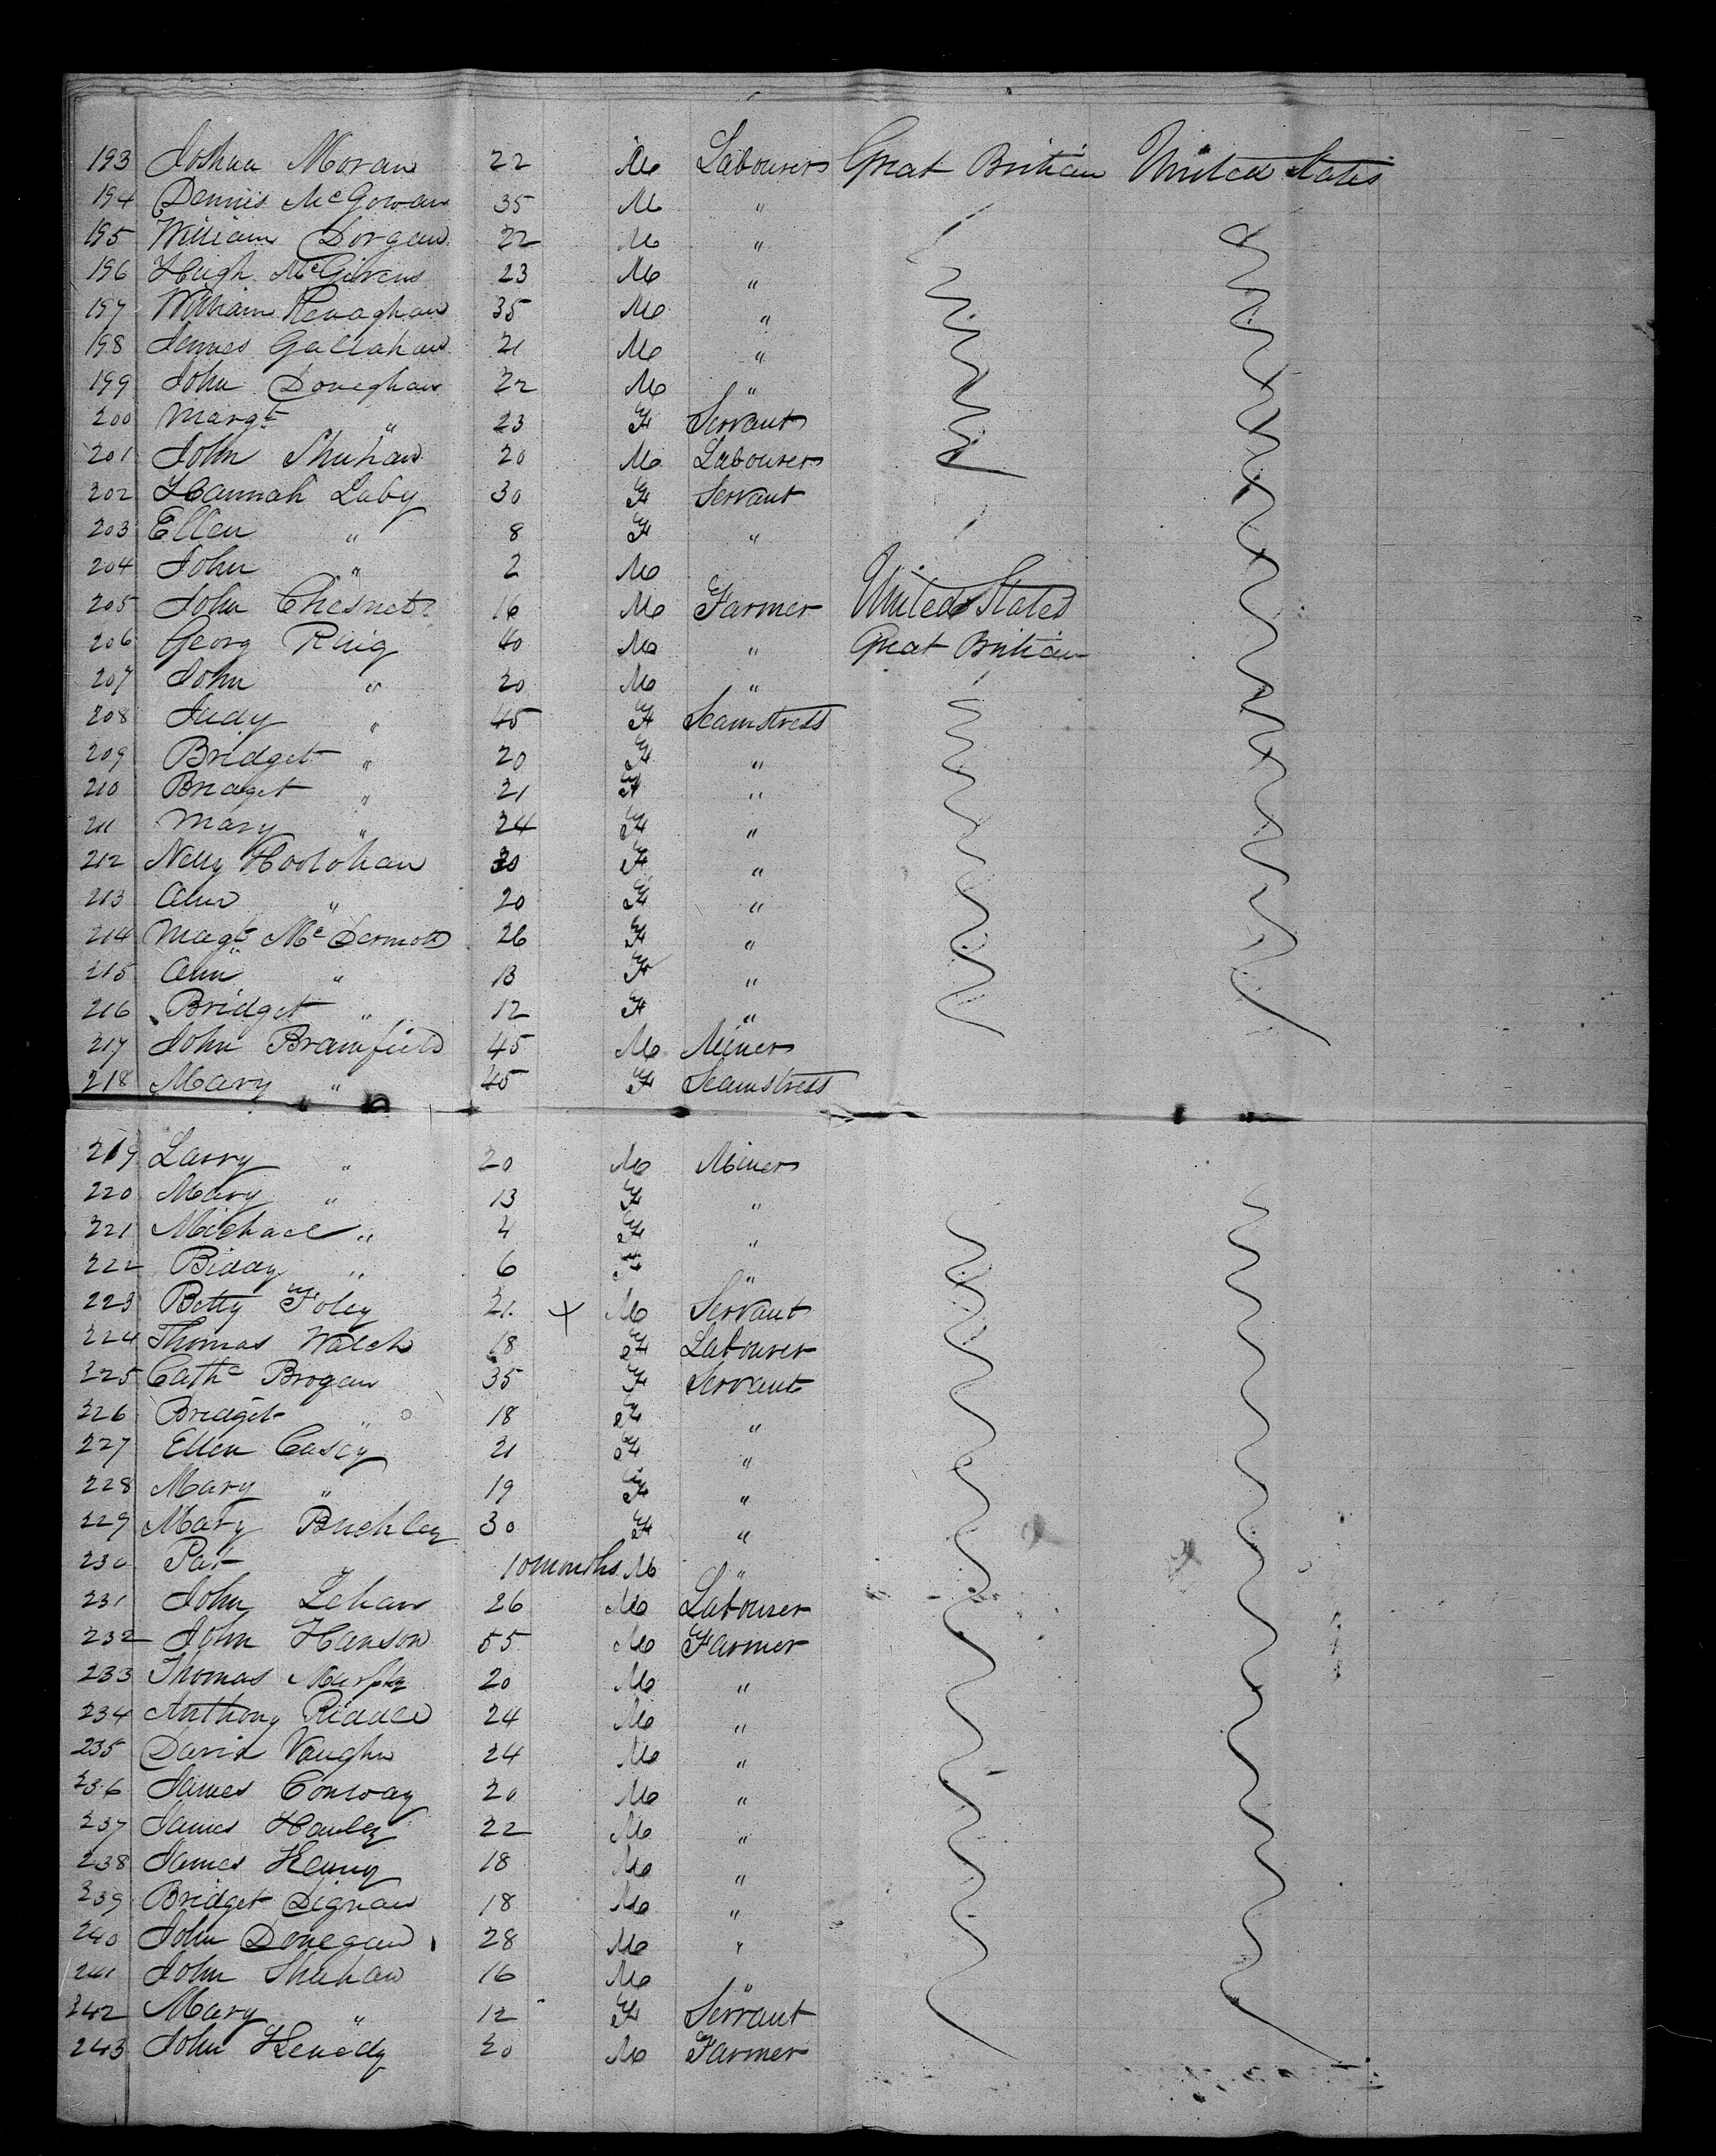 193 Joshua Moran 22 M Labourer Great Britian United States
194 Dennis McGowan 35 M "
195 William Dorgan 22 M "
196 Hugh McGivens 23 M "
197 William Renaghan 35 M "
198 James Gallahan 21 M "
199 John Doneghan 22 M "
200 Margt " 23 F Servant
201 John Shuhan 20 M Labourer
202 Hannah Luby 30 F Servant
203 Ellen " 8 F "
204 John " 2 M
205 John Chesnet 16 M Farmer United States
206 Georg Ring 40 M " Great Britian
207 John " 20 M "
208 Judy " 45 F Seamstress
209 Bridget " 20 F "
210 Bridget " 21 F "
211 Mary " 24 F "
212 Nelly Hoolohan 30 F "
213 Ann " 20 F "
214 Magt McDermott 26 F "
215 Ann " 13 F "
216 Bridget " 12 F "
217 John Bramfield 45 M Miner
218 Mary " 45 F Seamstress
219 Larry " 20 M Miner
220 Mary " 13 F "
221 Michael " 4 F "
222 Biddy " 6 F "
223 Betty Foley 21 x M Servant
224 Thomas Walch 18 F Labourer
225 Cathe Brogan 35 F Servant
226 Bridget " 18 F "
227 Ellen Casey 21 F "
228 Mary " 19 F "
229 Mary Buckley 30 F "
230 Pat 10 months M "
231 John Lehan 26 M Labourer
232 John Hanson 55 M Farmer
233 Thomas Murphy 20 M "
234 Anthony Riddle 24 M "
235 David Vaughn 24 M "
236 James Conway 20 M "
237 James Hanley 22 M "
238 James Kenny 18 M "
239 Bridget Dignan 18 M "
240 John Donegan 28 M "
241 John Shuhan 16 M "
242 Mary " 12 F Servant
243 John Kenedy 20 M Farmer